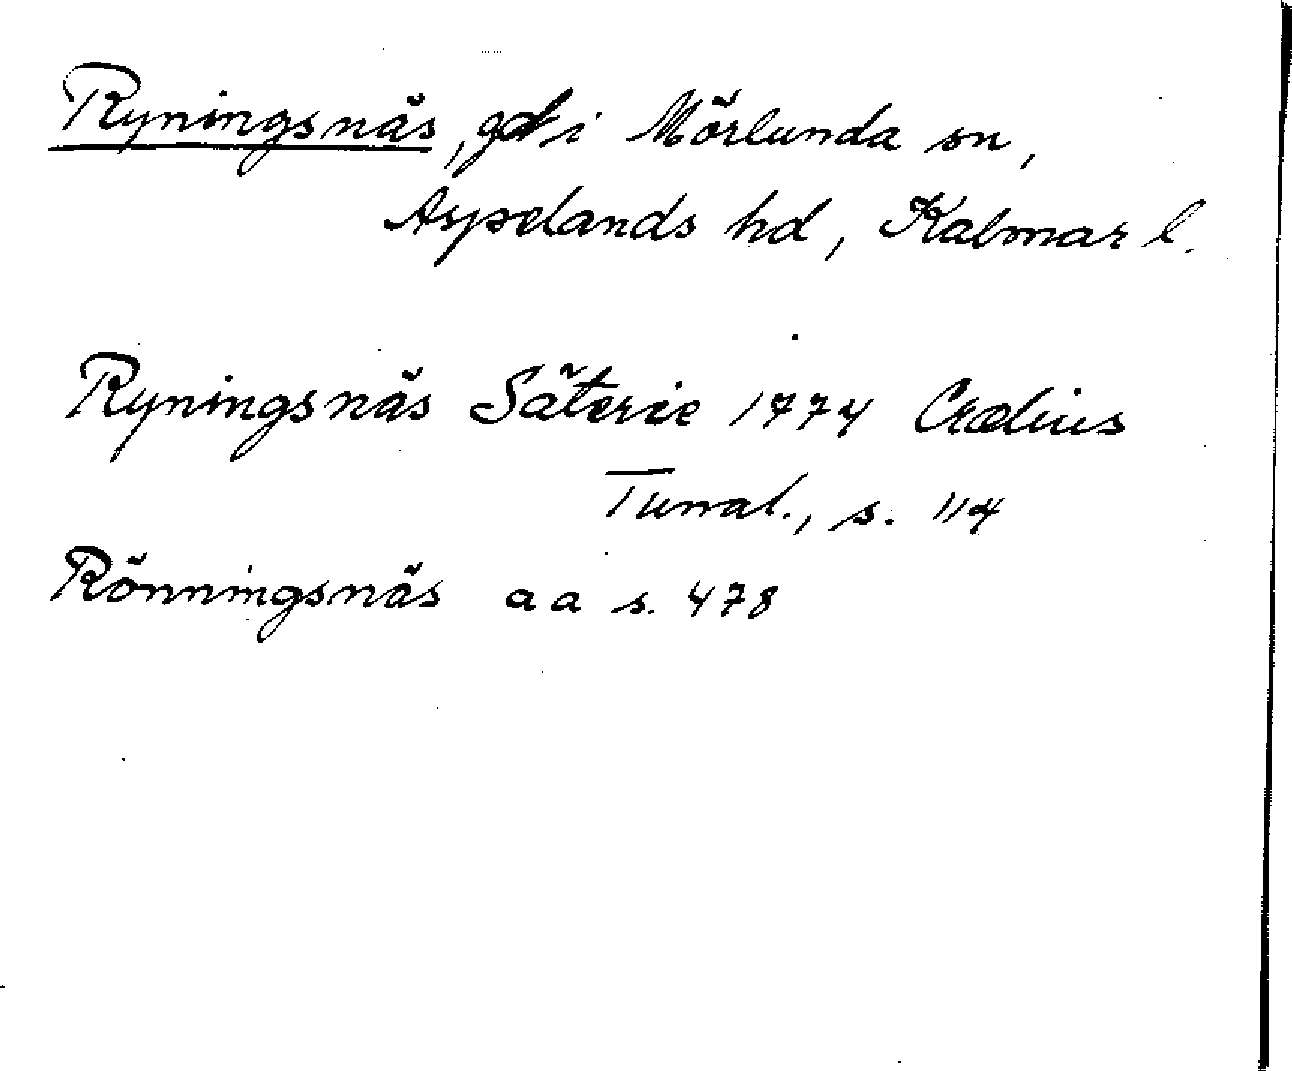 Ryningsnäs, gd i Mörlunda sn,
Aspelands hd, Kalmar l.
Ryningsnäs Säterie 1774 Crælius
Tunal., s. 114
Rönningsnäs a a s. 478